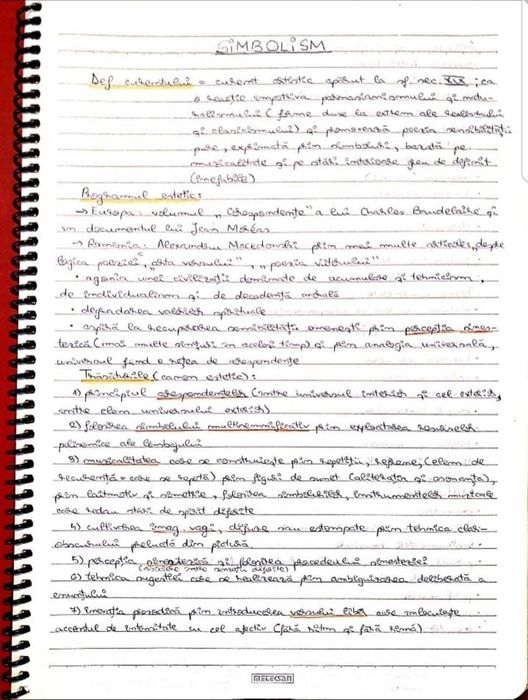 SIMBOLISM
Def curentului = curent artistic apărut la sf. sec. XIX, ca
o reacție împotriva parnasianismului și natu-
ralismului (forme duse la extrem ale realismului
și clasicismului) și promovează poezia sensibilității
pure, exprimată prin simboluri, bazată pe
muzicalitate și pe stări interioare greu de definit
(inefabile)
Programul estetic:
→ Europa: volumul „Corespondențe" a lui Charles Baudelaire și
un documentul lui Jean Moréas
→ România: Alexandru Macedonski prin mai multe articole, „despre
logica poeziei", „arta versului", „poezia viitorului"
• agonia unei civilizații dominate de acumulare și tehnicism,
de individualism și de decadență morală
• degradarea valorilor spirituale
• aspiră la recuperarea sensibilității omenești prin percepția sines-
tezică (mai multe simțuri în același timp) și prin analogia universală,
universul fiind o rețea de corespondențe
Trăsăturile (canon estetic):
1) principiul corespondențelor (între universul interior și cel exterior,
între elem. universului exterior)
2) folosirea simbolului multisemnificativ prin exploatarea resurselor
polisemice ale limbajului
3) muzicalitatea care se construiește prin repetiții, refrene, (elem. de
recurență = care se repetă) prin figuri de sunet (aliterația și asonanța),
prin laitmotiv și simetrie, folosirea simbolurilor, instrumentelor muzicale
care redau stări de spirit diferite
4) cultivarea imag. vagi, difuze sau estompate prin tehnica clar-
obscurului preluată din pictură
5) percepția sinestezică și folosirea procedeului sinesteziei
(asociere între senzații diferite)
6) tehnica sugestiei care se realizează prin ambiguizarea deliberată a
enunțului
7) inovația prozodică prin introducerea versului liber care înlocuiește
accentul de intensitate cu cel afectiv (fără ritm și fără rimă)
METECSAN